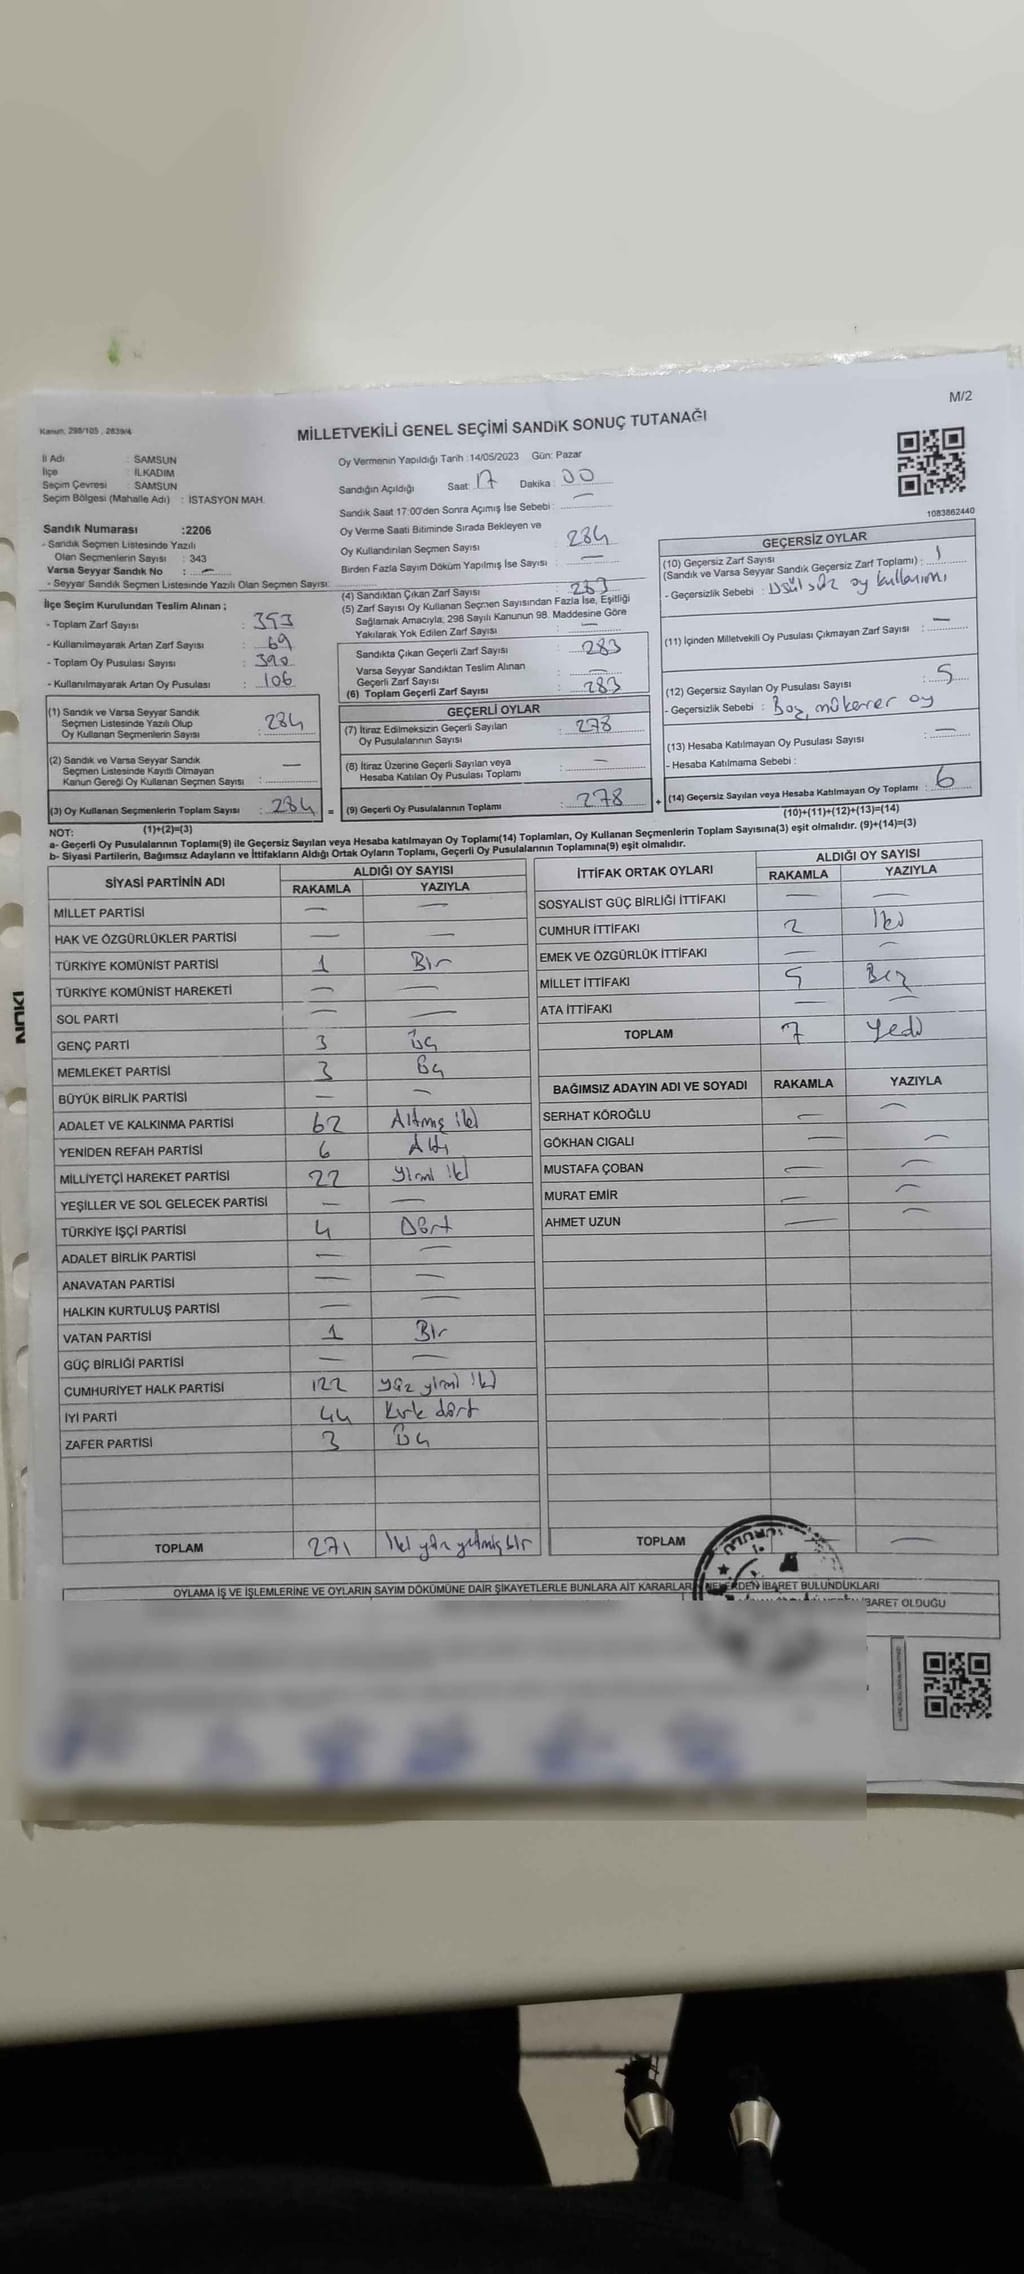 M/2
Kanun, 298/105 , 2839/4
MİLLETVEKİLİ GENEL SEÇİMİ SANDIK SONUÇ TUTANAĞI
İl Adı : SAMSUN
İlçe : İLKADIM
Seçim Çevresi : SAMSUN
Seçim Bölgesi (Mahalle Adı) : İSTASYON MAH.
Sandık Numarası :2206
- Sandık Seçmen Listesinde Yazılı
Olan Seçmenlerin Sayısı : 343
Varsa Seyyar Sandık No : —
- Seyyar Sandık Seçmen Listesinde Yazılı Olan Seçmen Sayısı:
İlçe Seçim Kurulundan Teslim Alınan ;
- Toplam Zarf Sayısı : 353
- Kullanılmayarak Artan Zarf Sayısı : 69
- Toplam Oy Pusulası Sayısı : 390
- Kullanılmayarak Artan Oy Pusulası : 106
(1) Sandık ve Varsa Seyyar Sandık
Seçmen Listesinde Yazılı Olup
Oy Kullanan Seçmenlerin Sayısı : 284
(2) Sandık ve Varsa Seyyar Sandık
Seçmen Listesinde Kayıtlı Olmayan
Kanun Gereği Oy Kullanan Seçmen Sayısı : —
(3) Oy Kullanan Seçmenlerin Toplam Sayısı : 284
(1)+(2)=(3)
Oy Vermenin Yapıldığı Tarih :14/05/2023 Gün: Pazar
Sandığın Açıldığı Saat: 17 Dakika : 00
Sandık Saat 17:00'den Sonra Açımış İse Sebebi : —
Oy Verme Saati Bitiminde Sırada Bekleyen ve
Oy Kullandırılan Seçmen Sayısı : 284
Birden Fazla Sayım Döküm Yapılmış İse Sayısı : —
(4) Sandıktan Çıkan Zarf Sayısı : 283
(5) Zarf Sayısı Oy Kullanan Seçmen Sayısından Fazla İse, Eşitliği
Sağlamak Amacıyla, 298 Sayılı Kanunun 98. Maddesine Göre
Yakılarak Yok Edilen Zarf Sayısı : —
Sandıkta Çıkan Geçerli Zarf Sayısı : 283
Varsa Seyyar Sandıktan Teslim Alınan
Geçerli Zarf Sayısı : —
(6) Toplam Geçerli Zarf Sayısı : 283
GEÇERLİ OYLAR
(7) İtiraz Edilmeksizin Geçerli Sayılan
Oy Pusulalarının Sayısı : 278
(8) İtiraz Üzerine Geçerli Sayılan veya
Hesaba Katılan Oy Pusulası Toplamı : —
= (9) Geçerli Oy Pusulalarının Toplamı : 278 +
1083862440
GEÇERSİZ OYLAR
(10) Geçersiz Zarf Sayısı
(Sandık ve Varsa Seyyar Sandık Geçersiz Zarf Toplamı) : 1
- Geçersizlik Sebebi : Usülsüz oy kullanımı
(11) İçinden Milletvekili Oy Pusulası Çıkmayan Zarf Sayısı : —
(12) Geçersiz Sayılan Oy Pusulası Sayısı : 5
- Geçersizlik Sebebi : Boş, mükerrer oy
(13) Hesaba Katılmayan Oy Pusulası Sayısı : —
- Hesaba Katılmama Sebebi :
(14) Geçersiz Sayılan veya Hesaba Katılmayan Oy Toplamı : 6
(10)+(11)+(12)+(13)=(14)
NOT:
a- Geçerli Oy Pusulalarının Toplamı(9) ile Geçersiz Sayılan veya Hesaba katılmayan Oy Toplamı(14) Toplamları, Oy Kullanan Seçmenlerin Toplam Sayısına(3) eşit olmalıdır. (9)+(14)=(3)
b- Siyasi Partilerin, Bağımsız Adayların ve İttifakların Aldığı Ortak Oyların Toplamı, Geçerli Oy Pusulalarının Toplamına(9) eşit olmalıdır.
SİYASİ PARTİNİN ADI ALDIĞI OY SAYISI
RAKAMLA YAZIYLA
MİLLET PARTİSİ — —
HAK VE ÖZGÜRLÜKLER PARTİSİ — —
TÜRKİYE KOMÜNİST PARTİSİ 1 Bir
TÜRKİYE KOMÜNİST HAREKETİ — —
SOL PARTİ — —
GENÇ PARTİ 3 Üç
MEMLEKET PARTİSİ 3 Üç
BÜYÜK BİRLİK PARTİSİ — —
ADALET VE KALKINMA PARTİSİ 62 Altmış iki
YENİDEN REFAH PARTİSİ 6 Altı
MİLLİYETÇİ HAREKET PARTİSİ 22 Yirmi iki
YEŞİLLER VE SOL GELECEK PARTİSİ — —
TÜRKİYE İŞÇİ PARTİSİ 4 Dört
ADALET BİRLİK PARTİSİ — —
ANAVATAN PARTİSİ — —
HALKIN KURTULUŞ PARTİSİ — —
VATAN PARTİSİ 1 Bir
GÜÇ BİRLİĞİ PARTİSİ — —
CUMHURİYET HALK PARTİSİ 122 Yüz yirmi iki
İYİ PARTİ 44 Kırk dört
ZAFER PARTİSİ 3 Üç
TOPLAM 271 İki yüz yetmiş bir
İTTİFAK ORTAK OYLARI ALDIĞI OY SAYISI
RAKAMLA YAZIYLA
SOSYALİST GÜÇ BİRLİĞİ İTTİFAKI — —
CUMHUR İTTİFAKI 2 İki
EMEK VE ÖZGÜRLÜK İTTİFAKI — —
MİLLET İTTİFAKI 5 Beş
ATA İTTİFAKI — —
TOPLAM 7 Yedi
BAĞIMSIZ ADAYIN ADI VE SOYADI RAKAMLA YAZIYLA
SERHAT KÖROĞLU — —
GÖKHAN CIGALI — —
MUSTAFA ÇOBAN — —
MURAT EMİR — —
AHMET UZUN — —
TOPLAM —
OYLAMA İŞ VE İŞLEMLERİNE VE OYLARIN SAYIM DÖKÜMÜNE DAİR ŞİKAYETLERLE BUNLARA AİT KARARLARIN NELERDEN İBARET BULUNDUKLARI
İBARET OLDUĞU